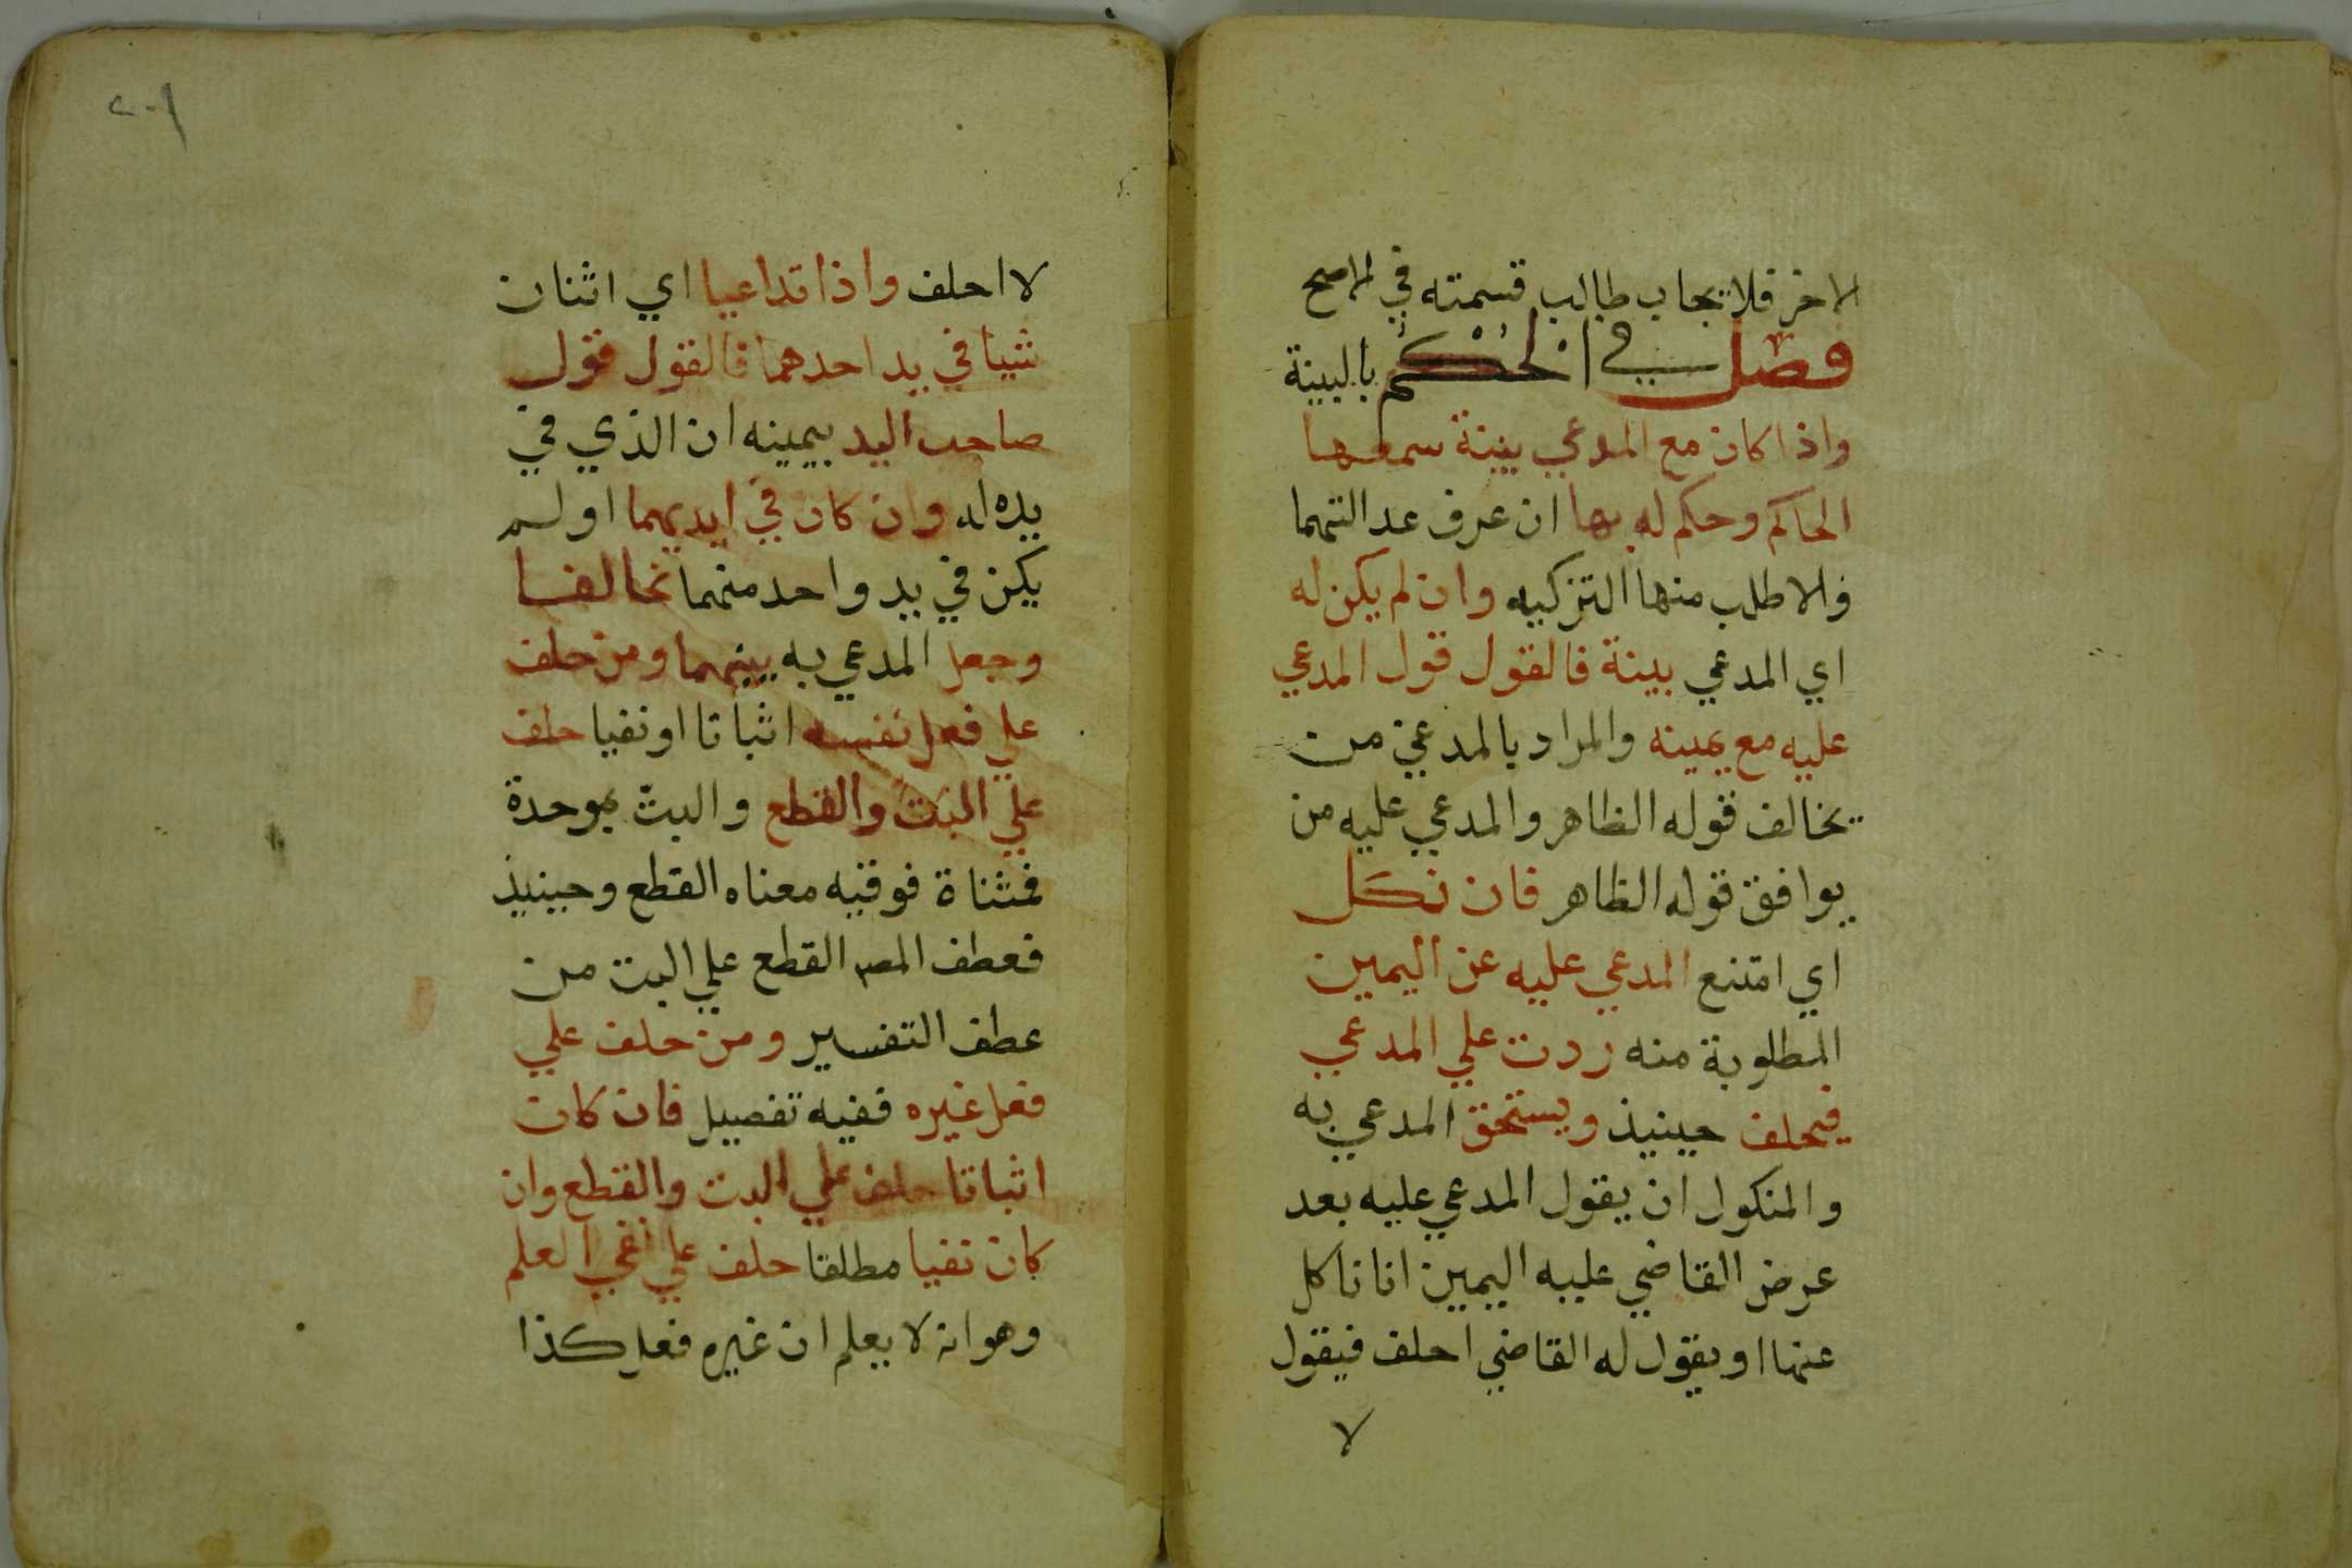 الاخر فلا يجاب طالب قسمته في الاصح
فصل في الحكم بالبينة
واذا كان مع المدعي بينة سمعها
الحاكم وحكم له بها ان عرف عدالتهما
والا طلب منها التزكيه وان لم يكن له
اي المدعي بينة فالقول قول المدعي
عليه مع يمينه والمراد بالمدعي من
يخالف قوله الظاهر والمدعي عليه من
يوافق قوله الظاهر فان نكل
اي امتنع المدعي عليه عن اليمين
المطلوبة منه ردت علي المدعي
فيحلف حينيذ ويستحق المدعي به
والنكول ان يقول المدعي عليه بعد
عرض القاضي عليه اليمين انا ناكل
عنها او يقول له القاضي احلف فيقول
لا
٢٠١
لا احلف واذا تداعيا اي اثنان
شيا في يد احدهما فالقول قول
صاحب اليد بيمينه ان الذي في
يده له وان كان في ايديهما او لم
يكن في يد واحد منهما تحالفا
وجعل المدعي به بينهما ومن حلف
علي فعل نفسه اثباتا او نفيا حلف
علي البت والقطع والبت بموحدة
فمثناة فوقيه معناه القطع وحينيذ
فعطف المص القطع علي البت من
عطف التفسير ومن حلف علي
فعل غيره ففيه تفصيل فان كان
اثباتا حلف علي البت والقطع وان
كان نفيا مطلقا حلف علي نفي العلم
وهو انه لا يعلم ان غيره فعل كذا